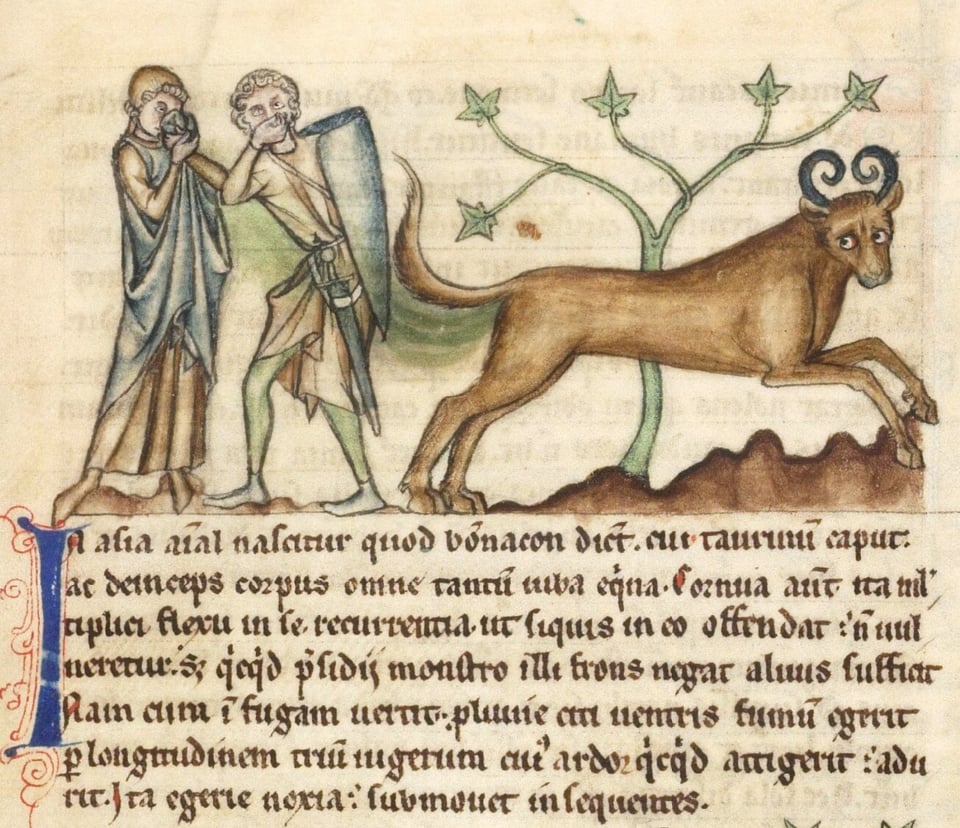 In asia aı̄al nascitur quod bōnacon dict̄. cui taurinū caput.
ac deinceps corpus omne tantū iuba eq̇na. Cornua aūt ita mĺ
tiplici flexu in se recurrentia. ut siquis in eo offendat: n̄ uul
neretur. Sꝫ q̇cq̇d p̄sidij monstro illi frons negat aluus sufficit
Nam cum ī fugam uertit. pluuie citi uentris fumū egerit
ꝑ longitudinem triū iugerum cuiꝰ ardor q̇cq̇d attigerit: adu
rit. Ita egerie noxia: submouet insequentes.